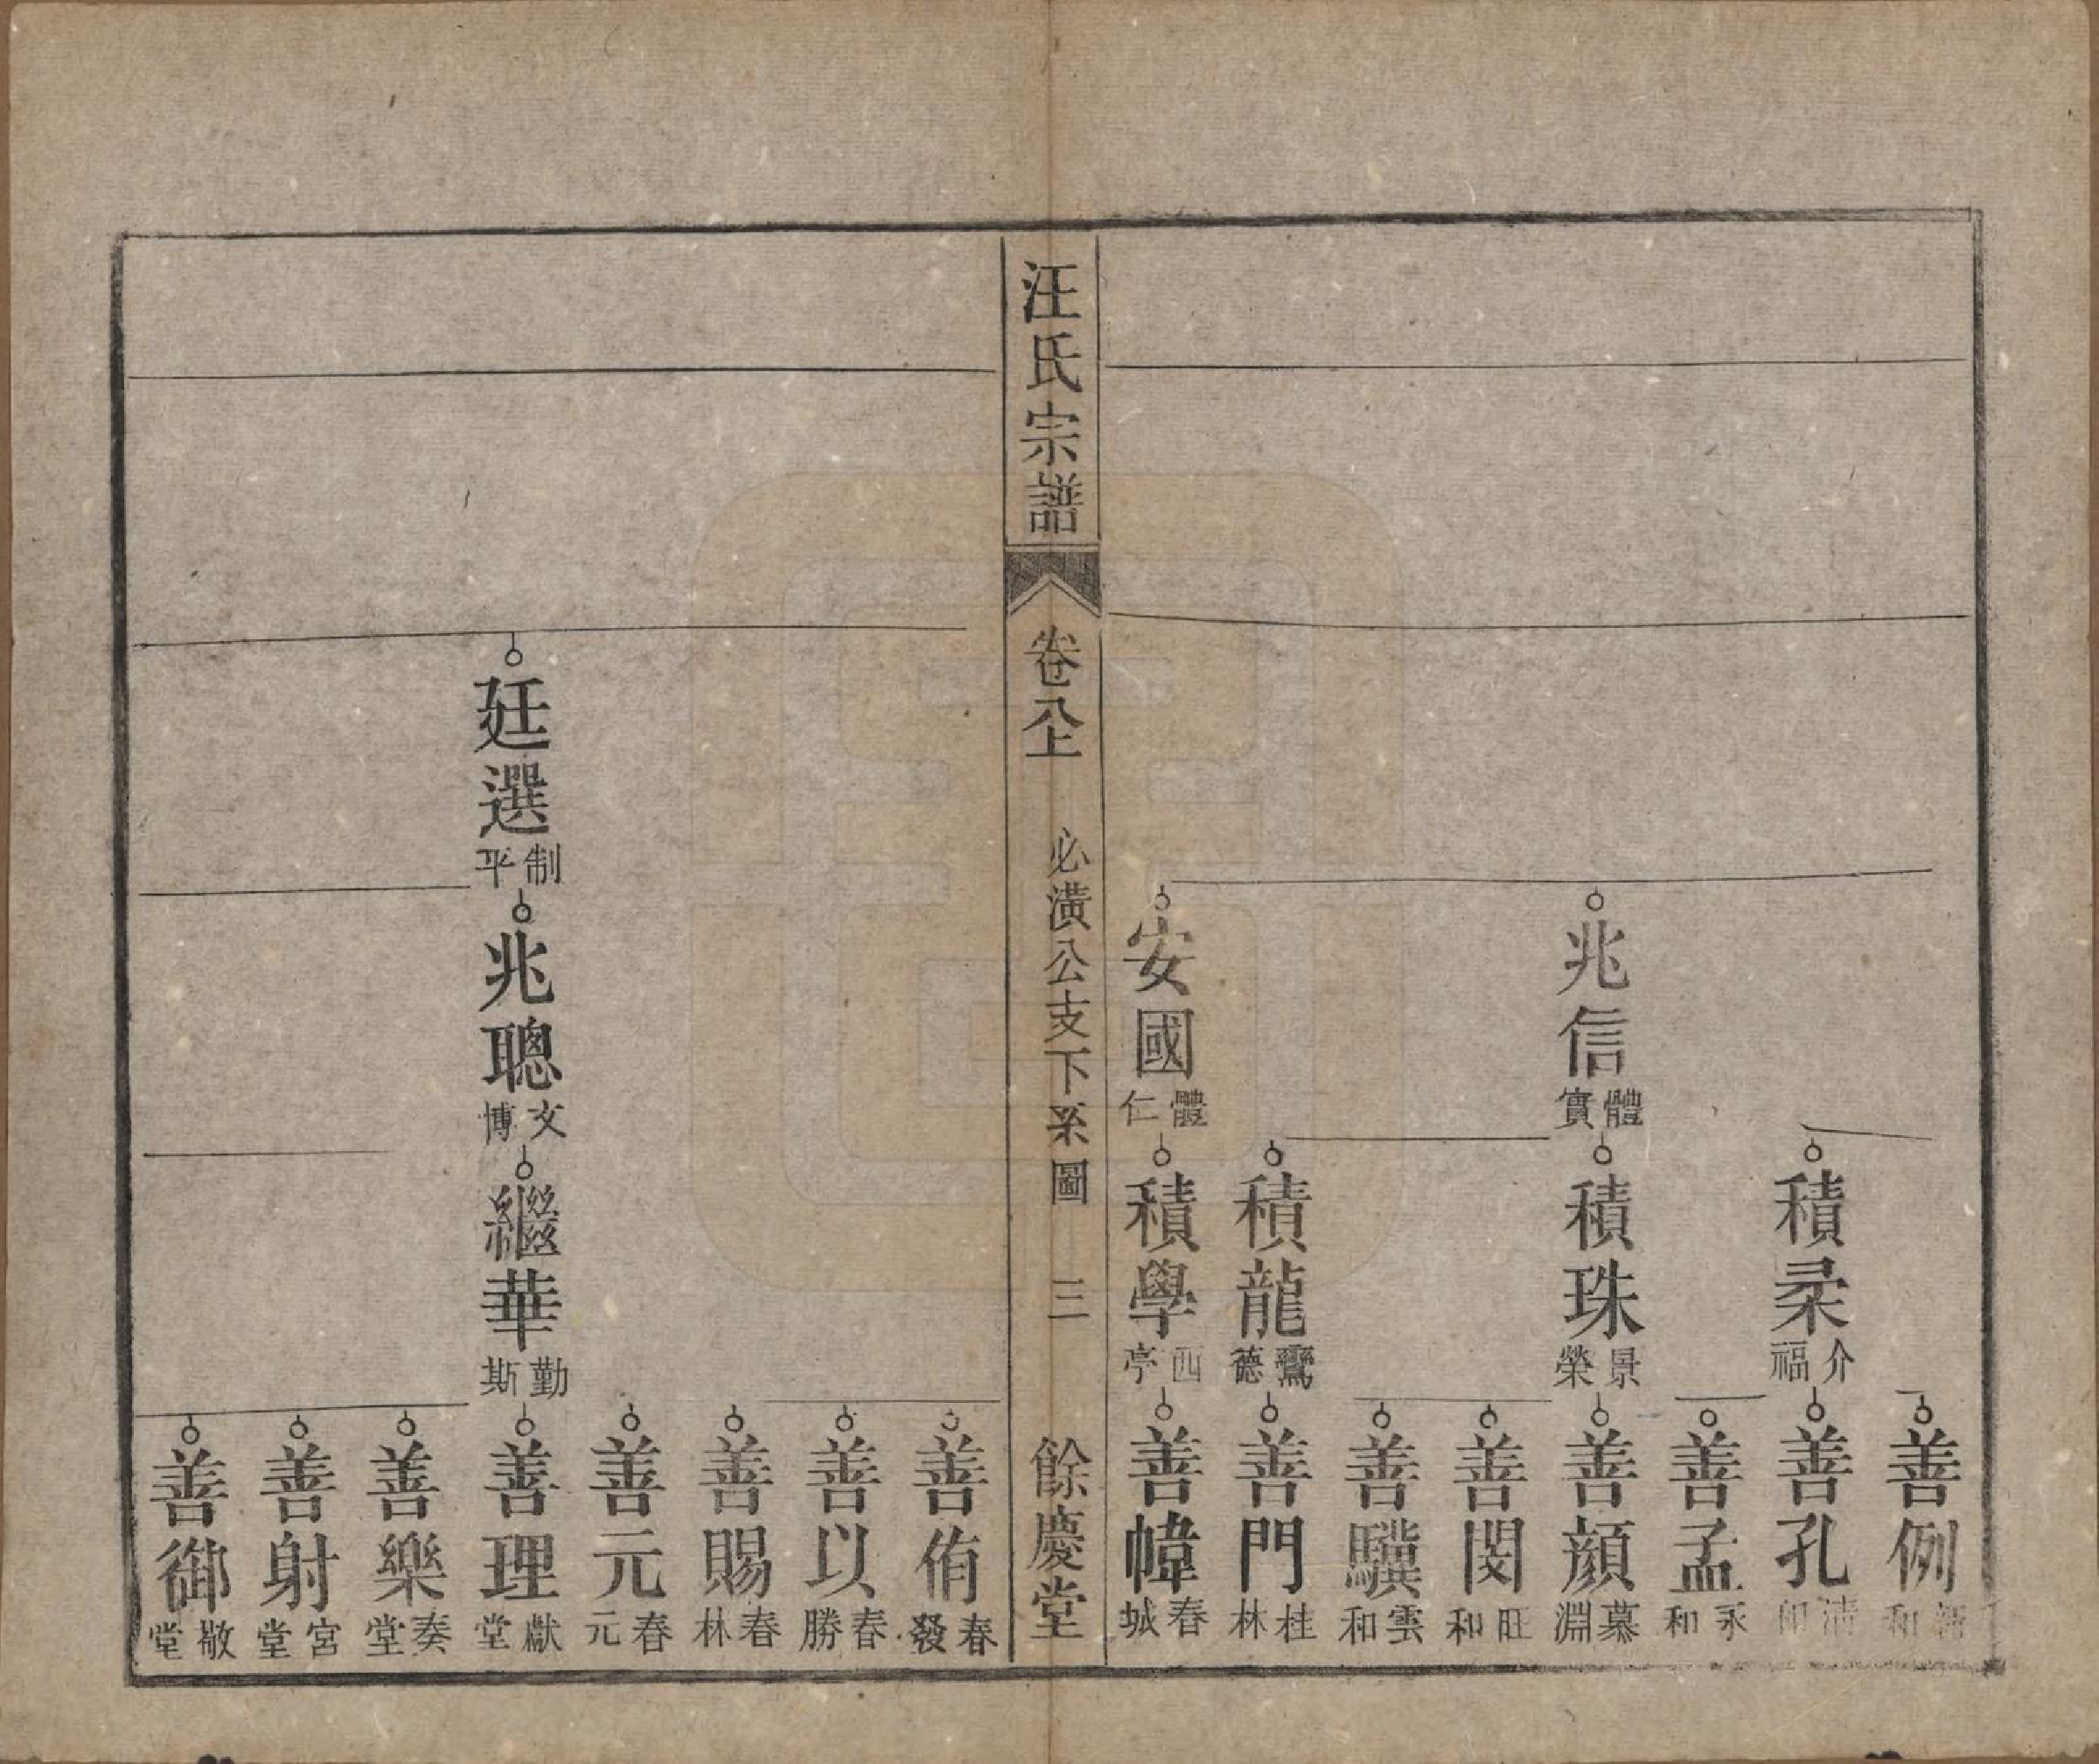 善例 和
積桒 介福
善孔 清
善孟 永和
兆信 體實
積珠 景榮
善顔 慕淵
善閔 旺和
善驥 雲和
積龍 鸞德
善門 桂林
安國 體仁
積學 西亭
善幃 春城
汪氏宗譜
卷八上
必潢公支下系圖
三
餘慶堂
善侑 春發
善以 春勝
善賜 春林
善元 春元
廷選 制平
兆聰 文博
繼華 勤斯
善理 獻堂
善樂 奏堂
善射 宮堂
善御 敬堂